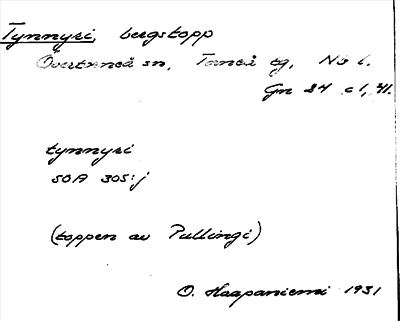 Tynnyri, bergstopp
Övertorneå sn, Torneå tg, Nb l.
Gn 24 c 1, 41.
tynnyri
SOA 305:j
(toppen av Pullingi)
O. Haapaniemi 1931